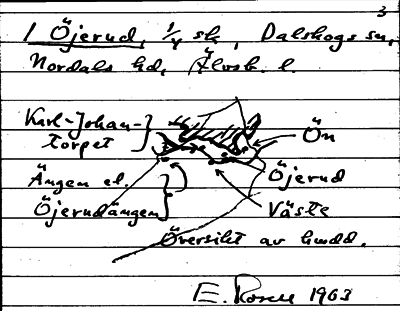 3
1 Öjerud, 1/4 sk, Dalskogs sn,
Nordals hd, Älvsb. l.
Karl-Johan-
torpet
Ön
Ängen el.
Öjerudängen
Öjerud
Väste
Översikt av huvdd.
E. Rosell 1963